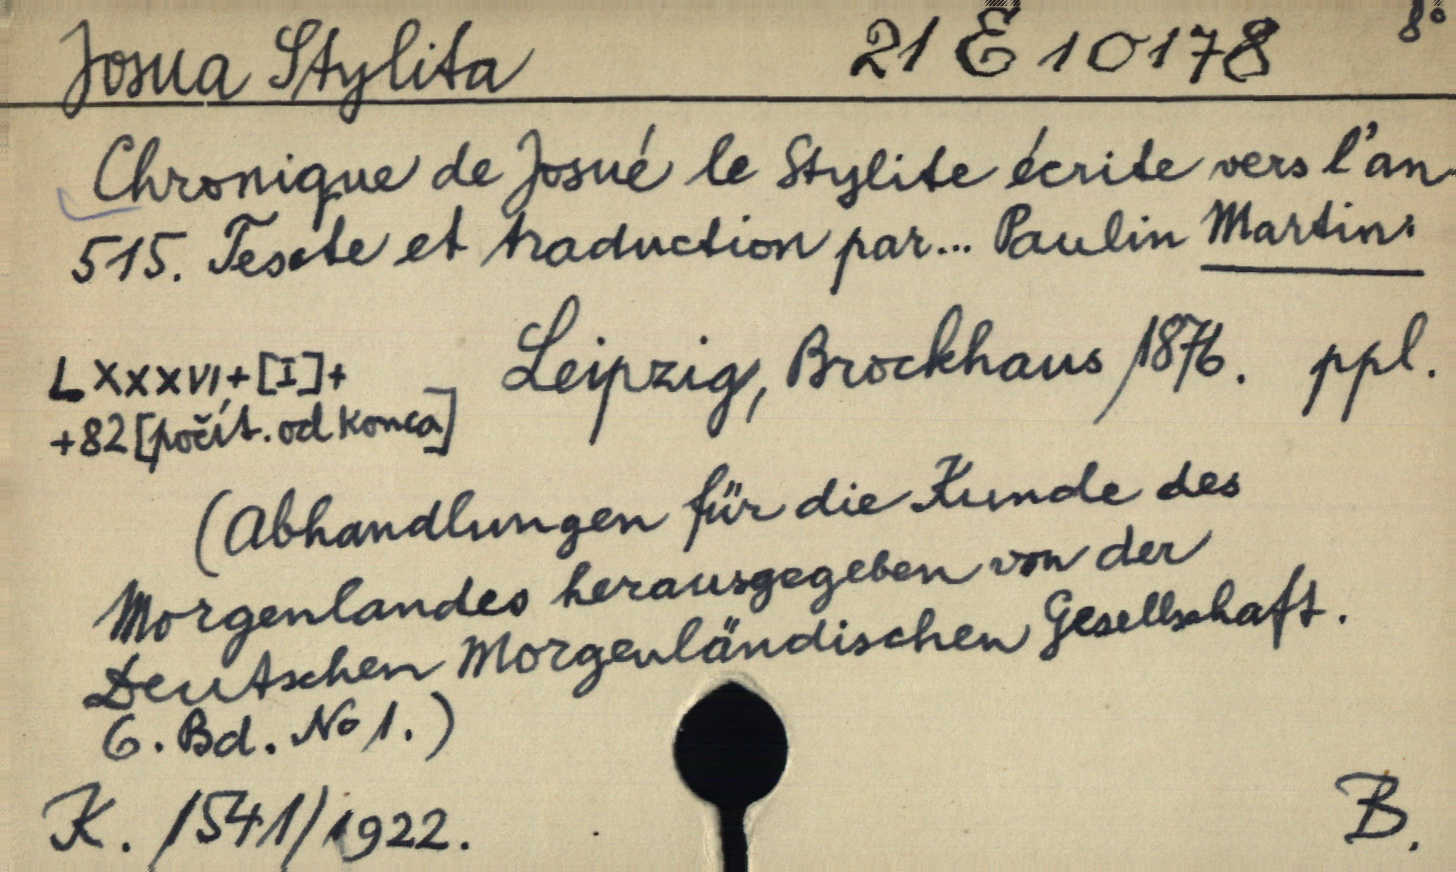 Josua Stylita 21 E 10178 8°
Chronique de Josué le Stylite écrite vers l'an
515. Texte et traduction par... Paulin Martin.
Leipzig, Brockhaus, 1876. ppl.
LXXXVI+[I]+
+82[počít. od konca]
(Abhandlungen für die Kunde des
Morgenlandes herausgegeben von der
Deutschen Morgenländischen Gesellschaft.
6. Bd. No 1.)
K. 1541/1922. B.